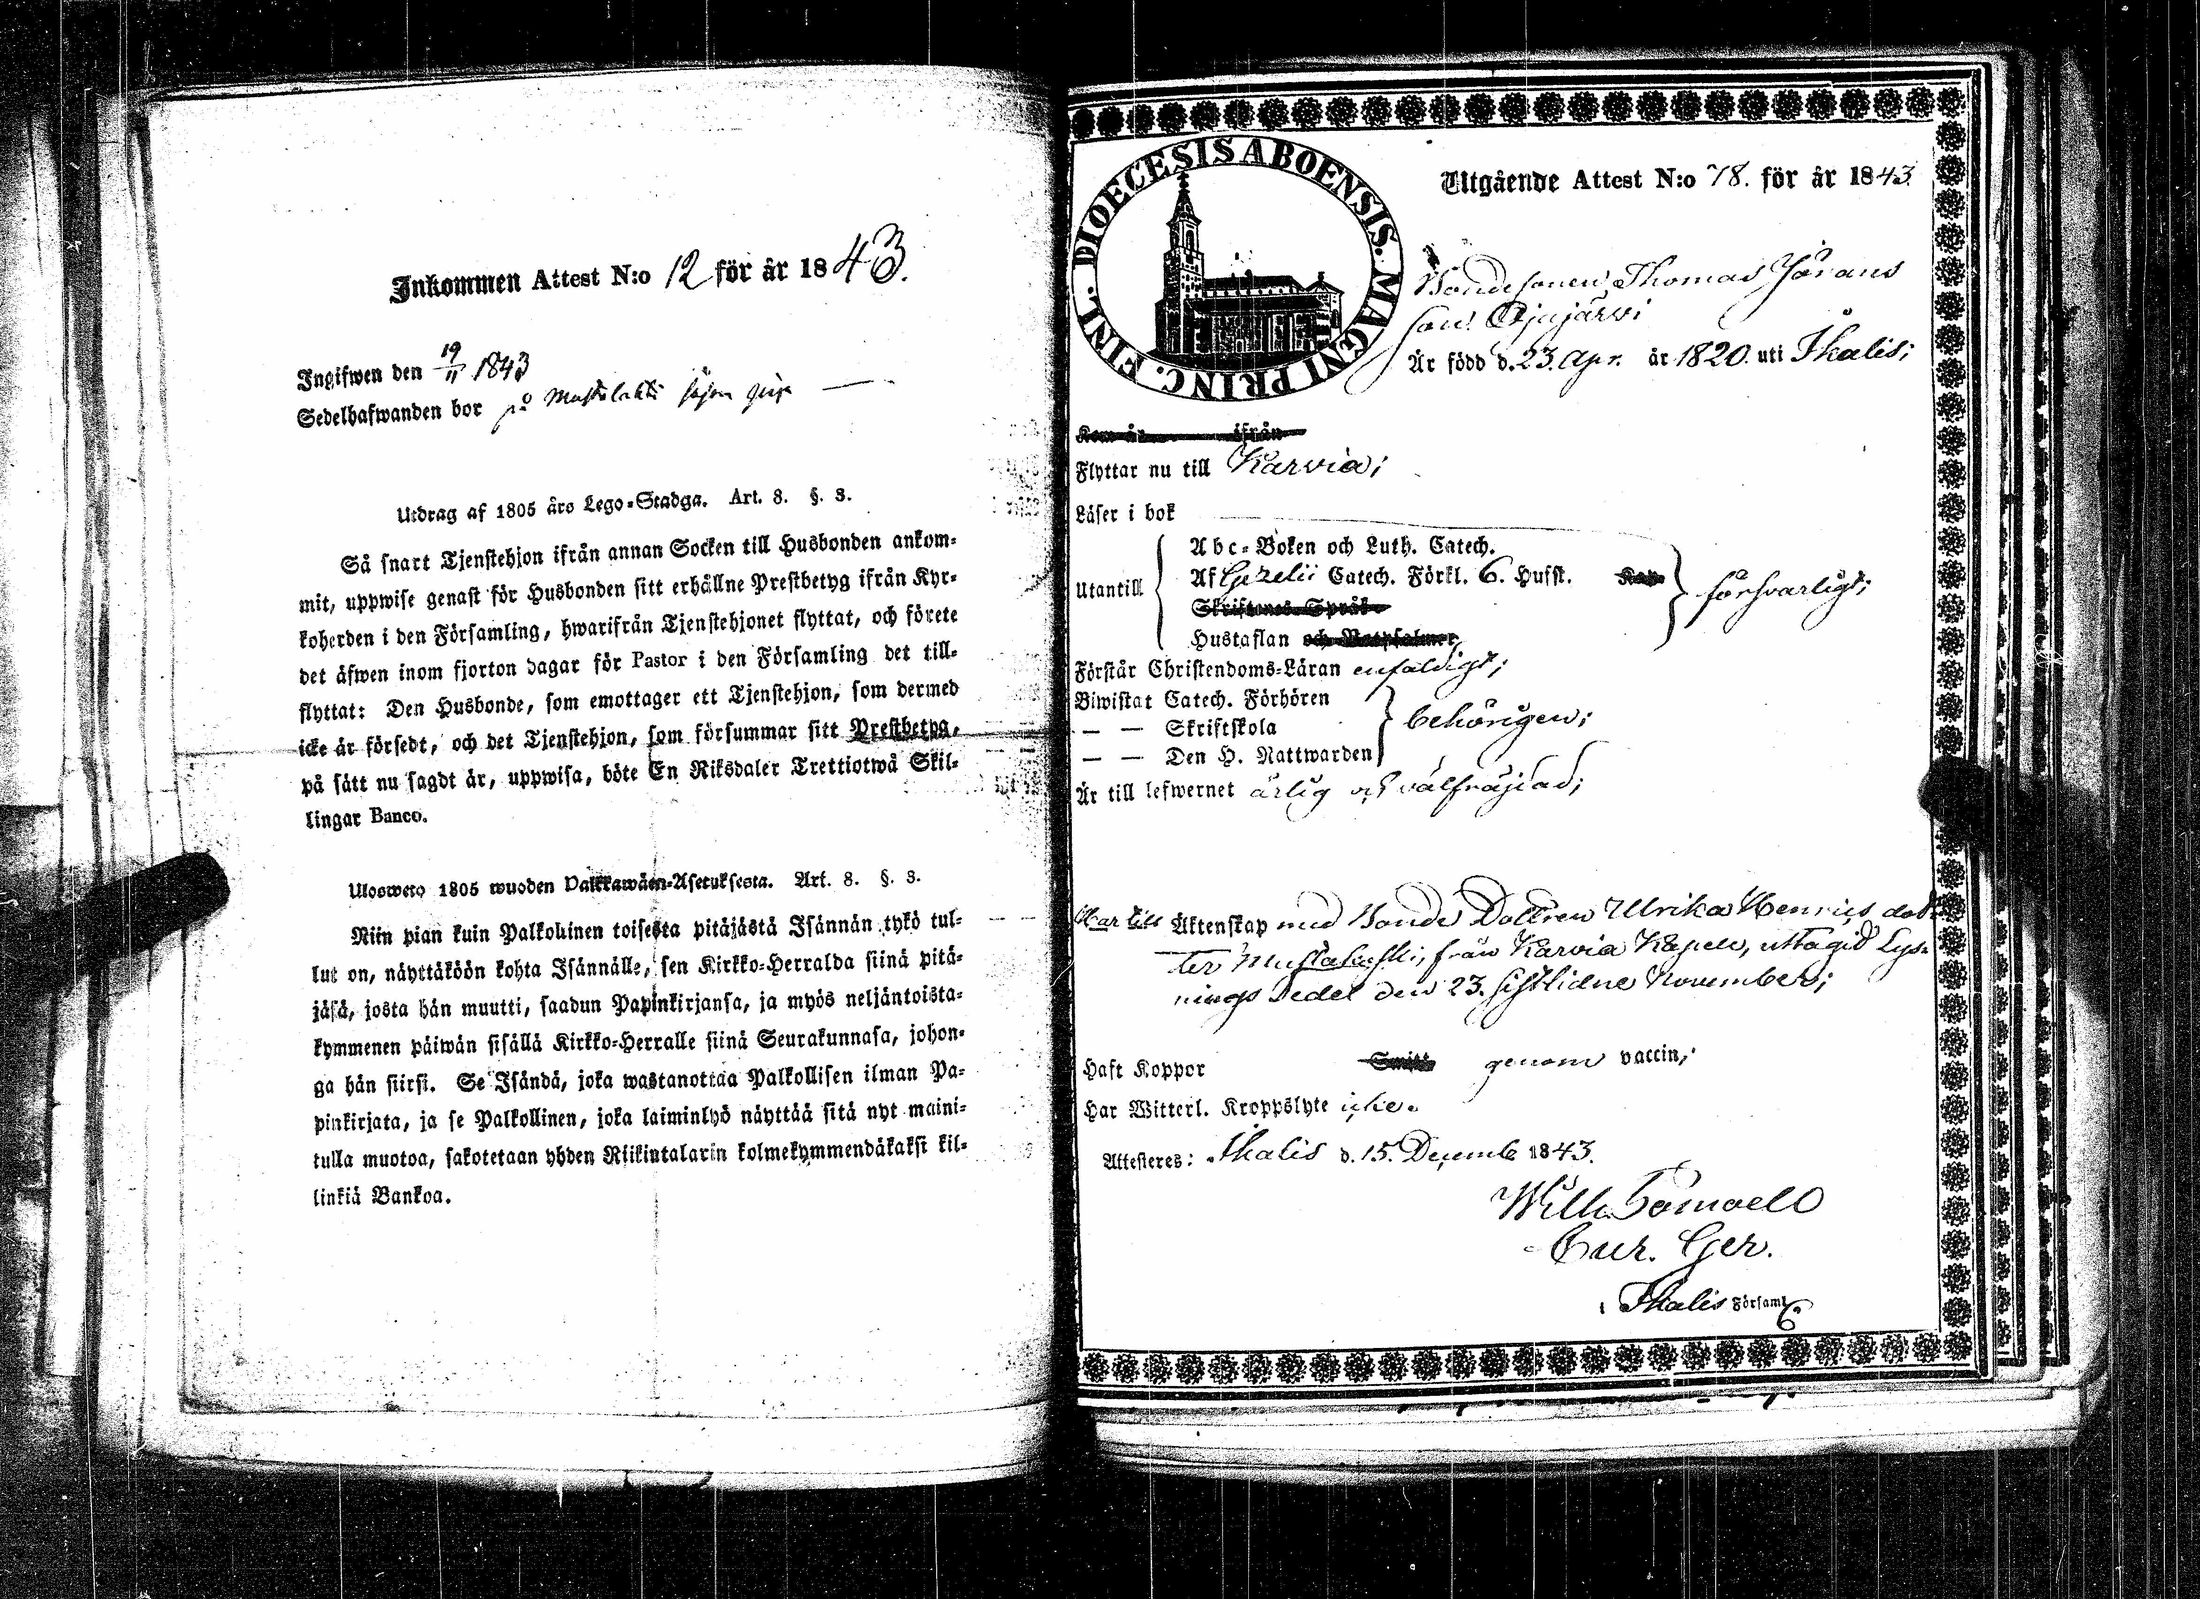 Inkommen Attest N:o 12 för år 1843.
Ingifwen den 19/11 1843
Sedelhafwanden bor på
Utdrag af 1805 års Lego-Stadga. Art. 8. §. 3.
Så snart Tjenstehjon ifrån annan Socken till Husbonden ankom-
mit, uppwise genast för Husbonden sitt erhållne Prestbetyg ifrån Kyr-
koherden i den Församling, hwarifrån Tjenstehjonet flyttat, och förete
det äfwen inom fjorton dagar för Pastor i den Församling det till-
flyttat: Den Husbonde, som emottager ett Tjenstehjon, som dermed
icke är försedt, och det Tjenstehjon, som försummar sitt Prestbetyg,
på sätt nu sagdt är, uppwisa, böte En Riksdaler Trettiotwå Skil-
lingar Banco.
Uloswето 1805 wuoden Palkkawäen-Asetuksesta. Art. 8. §. 3.
Niin pian kuin Palkolinen toisesta pitäjästä Isännän tykö tul-
lut on, näyttäköön kohta Isännälle, sen Kirkko-Herralda siinä pitä-
jäsä, josta hän muutti, saadun Papinkirjansa, ja myös neljäntoista-
kymmenen päiwän sisällä Kirkko-Herralle siinä Seurakunnasa, johon-
ga hän siirsi. Se Isändä, joka wastanottaa Palkollisen ilman Pa-
pinkirjata, ja se Palkollinen, joka laiminlyö näyttää sitä nyt maini-
tulla muotoa, sakotetaan yhden Riikintalarin kolmekymmendäkaksi kil-
linkiä Bankoa.
DIOECESIS ABOENSIS. MAGNI PRINC. FINL.
Utgående Attest N:o 78. för år 1843
Bondesonen Thomas Jörans
son Ojajärvi
Är född d. 23. Apr. år 1820. uti Ikalis;
Kom år ifrån
Flyttar nu till Karvia;
Läser i bok
Abc-Boken och Luth. Catech.
Utantill Af Gezelii Catech. Förkl. 6. Hufst. Kap försvarligt;
Skriftenes Språk
Hustaflan och Botpsalmer
Förstår Christendoms-Läran enfaldigt;
Biwistat Catech. Förhören
— — Skriftskola behörigen;
— — Den H. Nattwarden
Är till lefwernet ärlig och välfräjdad;
Har till Äktenskap med Bonde Dottren Ulrika Henrics dot-
ter från Karvia Kapell, uttagit Lys-
nings Sedel den 23. sistlidne November;
Haft Koppor genom vaccin;
Har Witterl. Kroppslyte icke.
Attesteres: Ikalis d. 15. Decemb 1843.
Wilh.
Cur. Ger.
i Ikalis Församl